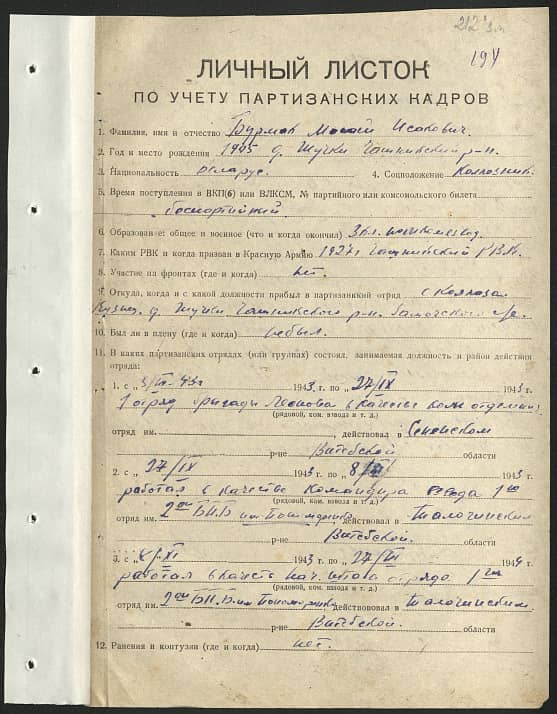 194
ЛИЧНЫЙ ЛИСТОК
ПО УЧЕТУ ПАРТИЗАНСКИХ КАДРОВ
1. Фамилия, имя и отчество Бурмак Исакович.
2. Год и место рождения д. Жучки Чашникский р-н.
3. Национальность беларус. 4. Соцположение Колхозник.
5. Время поступления в ВКП(б) или ВЛКСМ, № партийного или комсомольского билета
беспартийный
6. Образование: общее и военное (что и когда окончил) 3 кл.
7. Каким РВК и когда призван в Красную Армию 1927г Чашникский РВК.
8. Участие на фронтах (где и когда) нет.
9. Откуда, когда и с какой должности прибыл в партизанский отряд с колхоза
д. Жучки Чашникского р-н.
10. Был ли в плену (где и когда) небыл.
11. В каких партизанских отрядах (или группах) состоял, занимаемая должность и район действия
отряда:
1. с „ 1943 г. по „ 27/IX 1943 г.
1 отряд бригады Леонова в качестве ком. отделения
(рядовой, ком. взвода и т. д.)
отряд им. , действовал в Сенненском
р-не Витебской области
2. с „ 27/IX 1943 г. по „ 8/XI 1943 г.
работал в качестве командира взвода 1го
(рядовой, ком. взвода и т. д.)
отряд им. 2ой БПБ им. Пономаренко действовал в Толочинском
р-не Витебской. области
3. с „ 1943 г. по „ 1944 г.
работал в качестве нач. штаба отряда 1го
(рядовой, ком. взвода и т. д.)
отряд им. 2ой БПБ им Пономаренко, действововал в Толочинским.
р-не Витебской. области
12. Ранения и контузии (где и когда) нет.